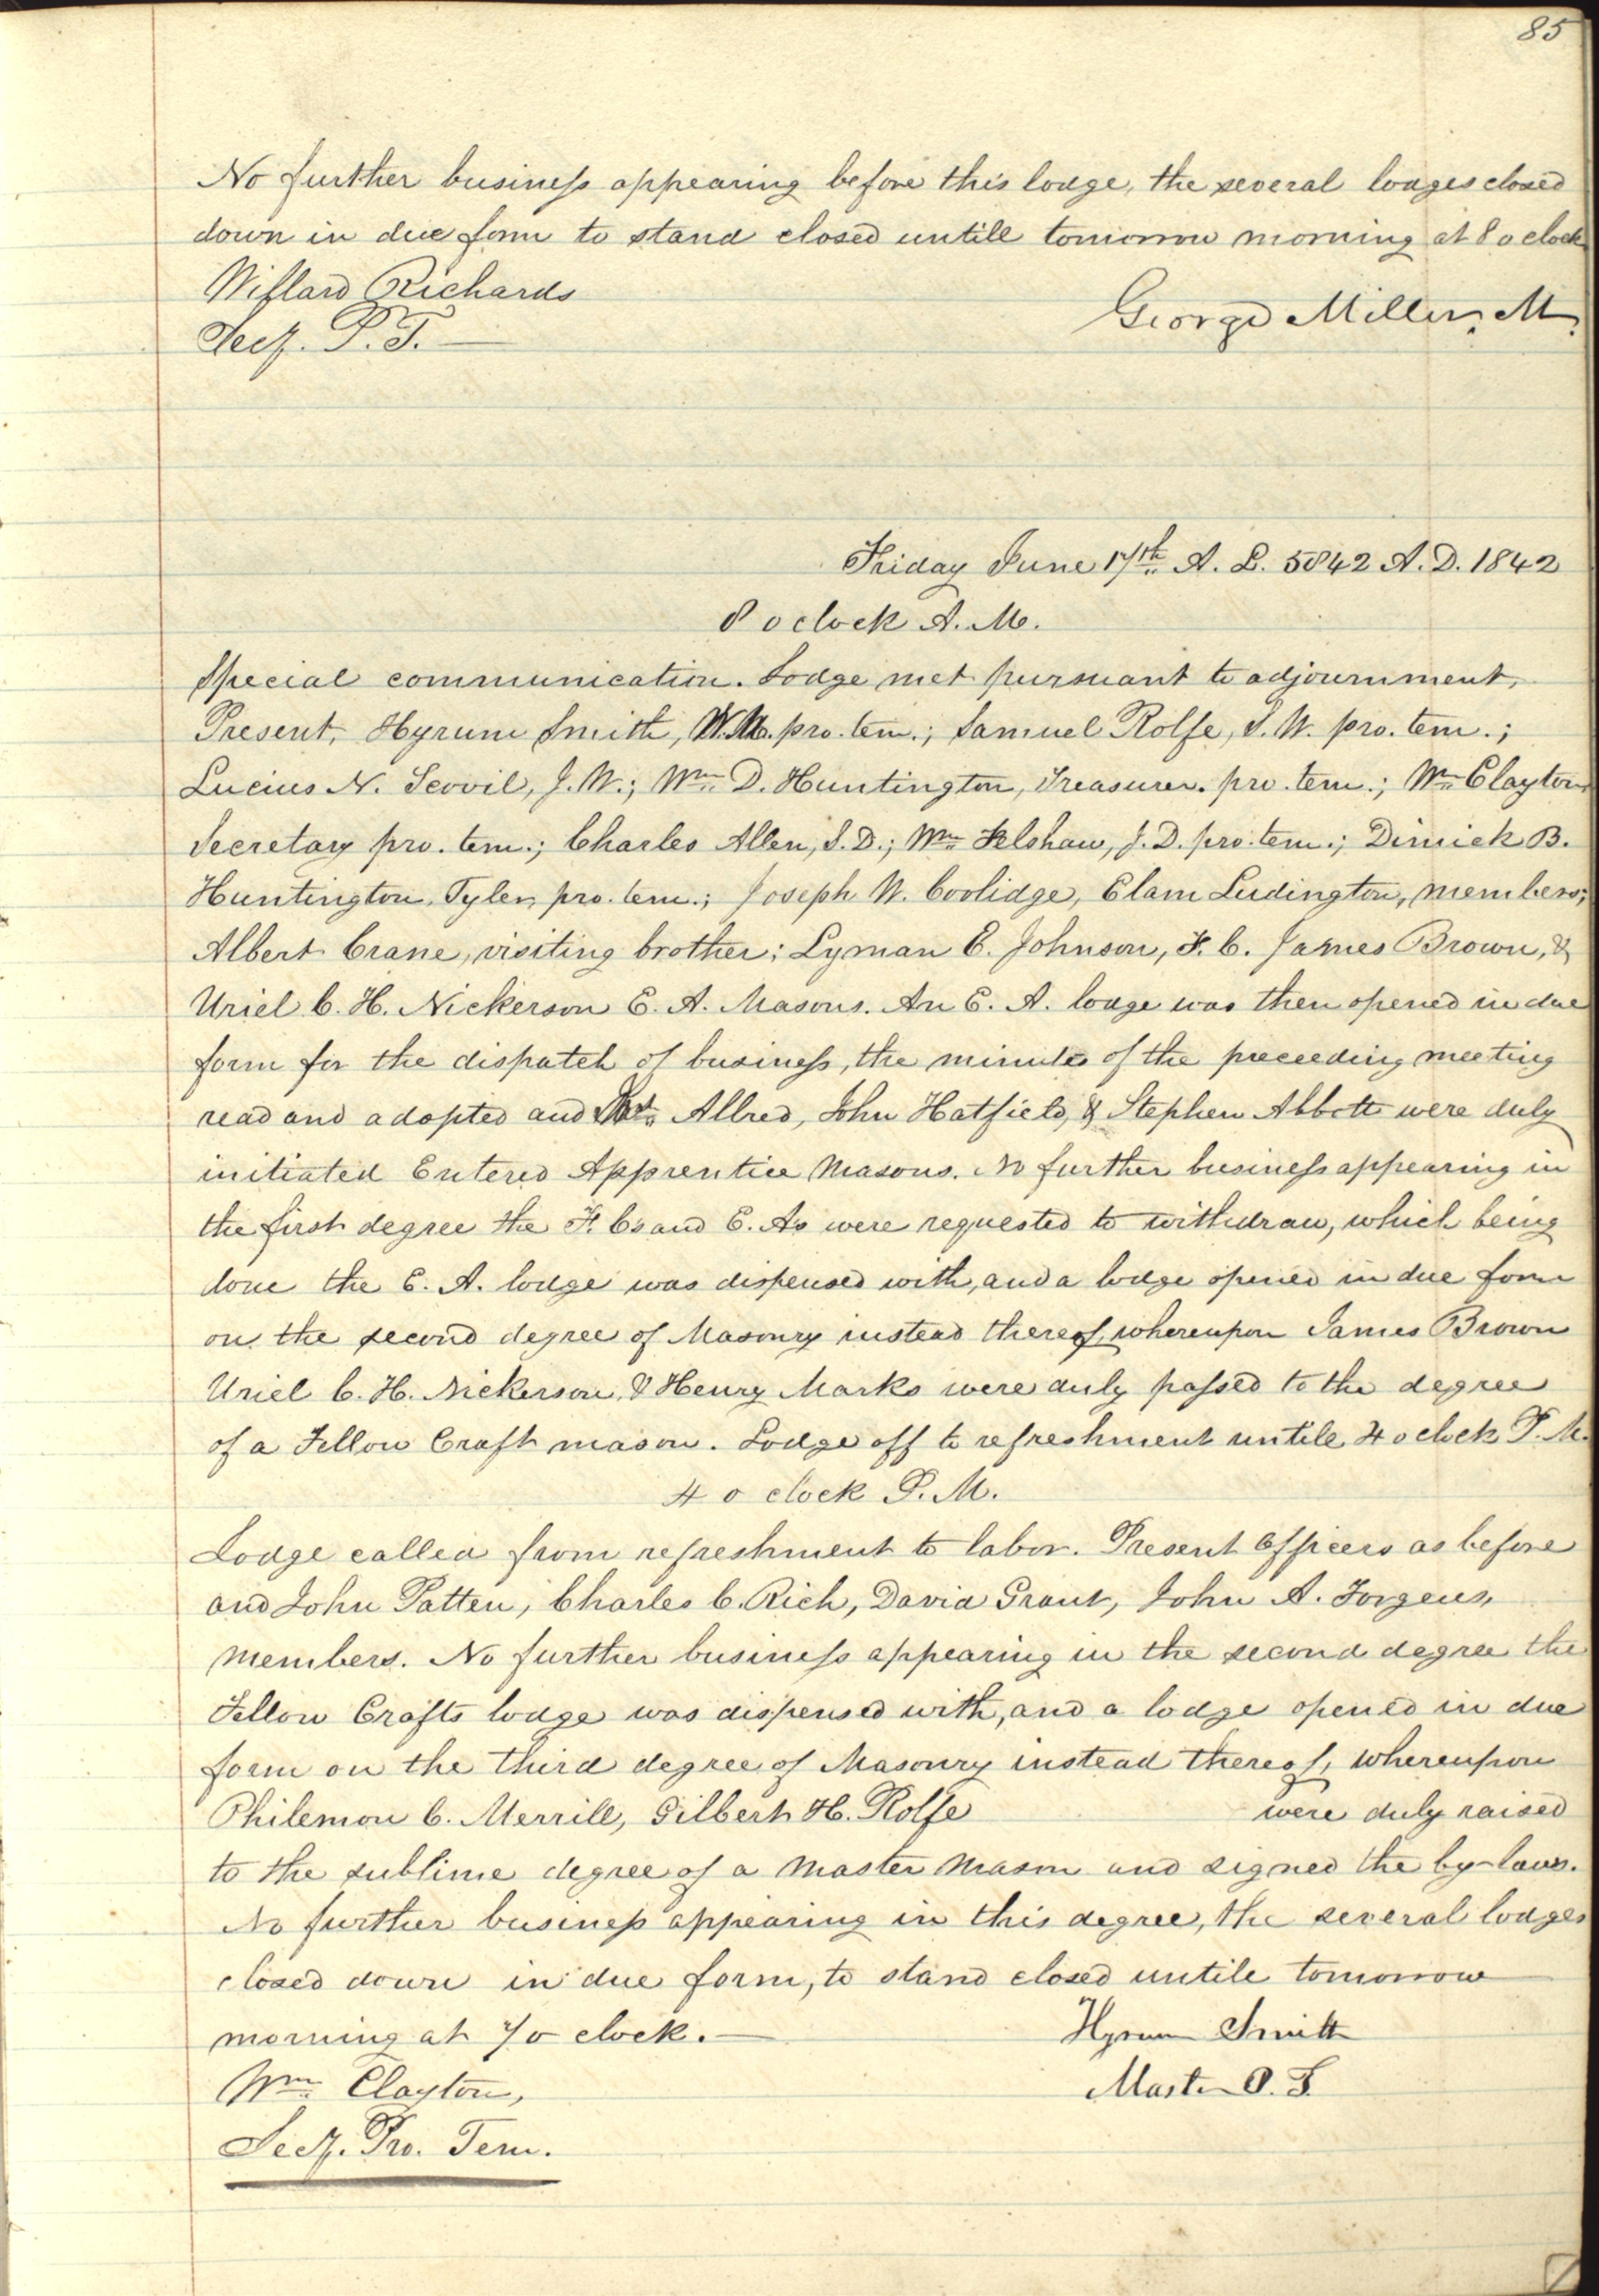 85
No further business appearing before this lodge, the several lodges closed
down in due form to stand closed untill tomorrow morning at 8 o clock
Willard Richards
George Miller, M.
Secy. P. T.
Friday June 17th A. L. 5842 A. D. 1842
8 o clock A. M.
Special communication. Lodge met pursuant to adjournment,
Present, Hyrum Smith, W. M. pro. tem.; Samuel Rolfe, S. W. pro. tem.;
Lucius N. Scovil, J. W.; Wm. D. Huntington, Treasurer. pro. tem.; Wm. Clayton
Secretary pro. tem.; Charles Allen, S. D.; Wm. Felshaw, J. D. pro. tem.; Dimick B.
Huntington, Tyler, pro. tem.; Joseph W. Coolidge, Elam Ludington, members;
Albert Crane, visiting brother; Lyman E. Johnson, F. C. James Brown, &
Uriel C. H. Nickerson E. A. Masons. An E. A. lodge was then opened in due
form for the dispatch of business, the minutes of the preceeding meeting
read and adopted and Allred, John Hatfield, & Stephen Abbott were duly
initiated Entered Apprentice Masons. No further business appearing in
the first degree the F. Cs and E. As were requested to withdraw, which being
done the E. A. lodge was dispensed with, and a lodge opened in due form
on the second degree of Masonry instead thereof, whereupon James Brown
Uriel C. H. Nickerson, & Henry Marks were duly passed to the degree
of a Fellow Craft mason. Lodge off to refreshment untile 4 o clock P. M.
4 o clock P. M.
Lodge called from refreshment to labor. Present Officers as before
and John Patten, Charles C. Rich, David Grant, John A. Forgeus,
members. No further business appearing in the second degree the
Fellow Crafts lodge was dispensed with, and a lodge opened in due
form on the third degree of Masonry instead thereof, whereupon
Philemon C. Merrill, Gilbert H. Rolfe were duly raised
to the sublime degree of a Master Mason and signed the by-laws.
No further business appearing in this degree, the several lodges
closed down in due form, to stand closed untile tomorrow
morning at 7 o clock.
Hyrum Smith
Wm. Clayton,
Master P. T.
Secy. Pro. Tem.